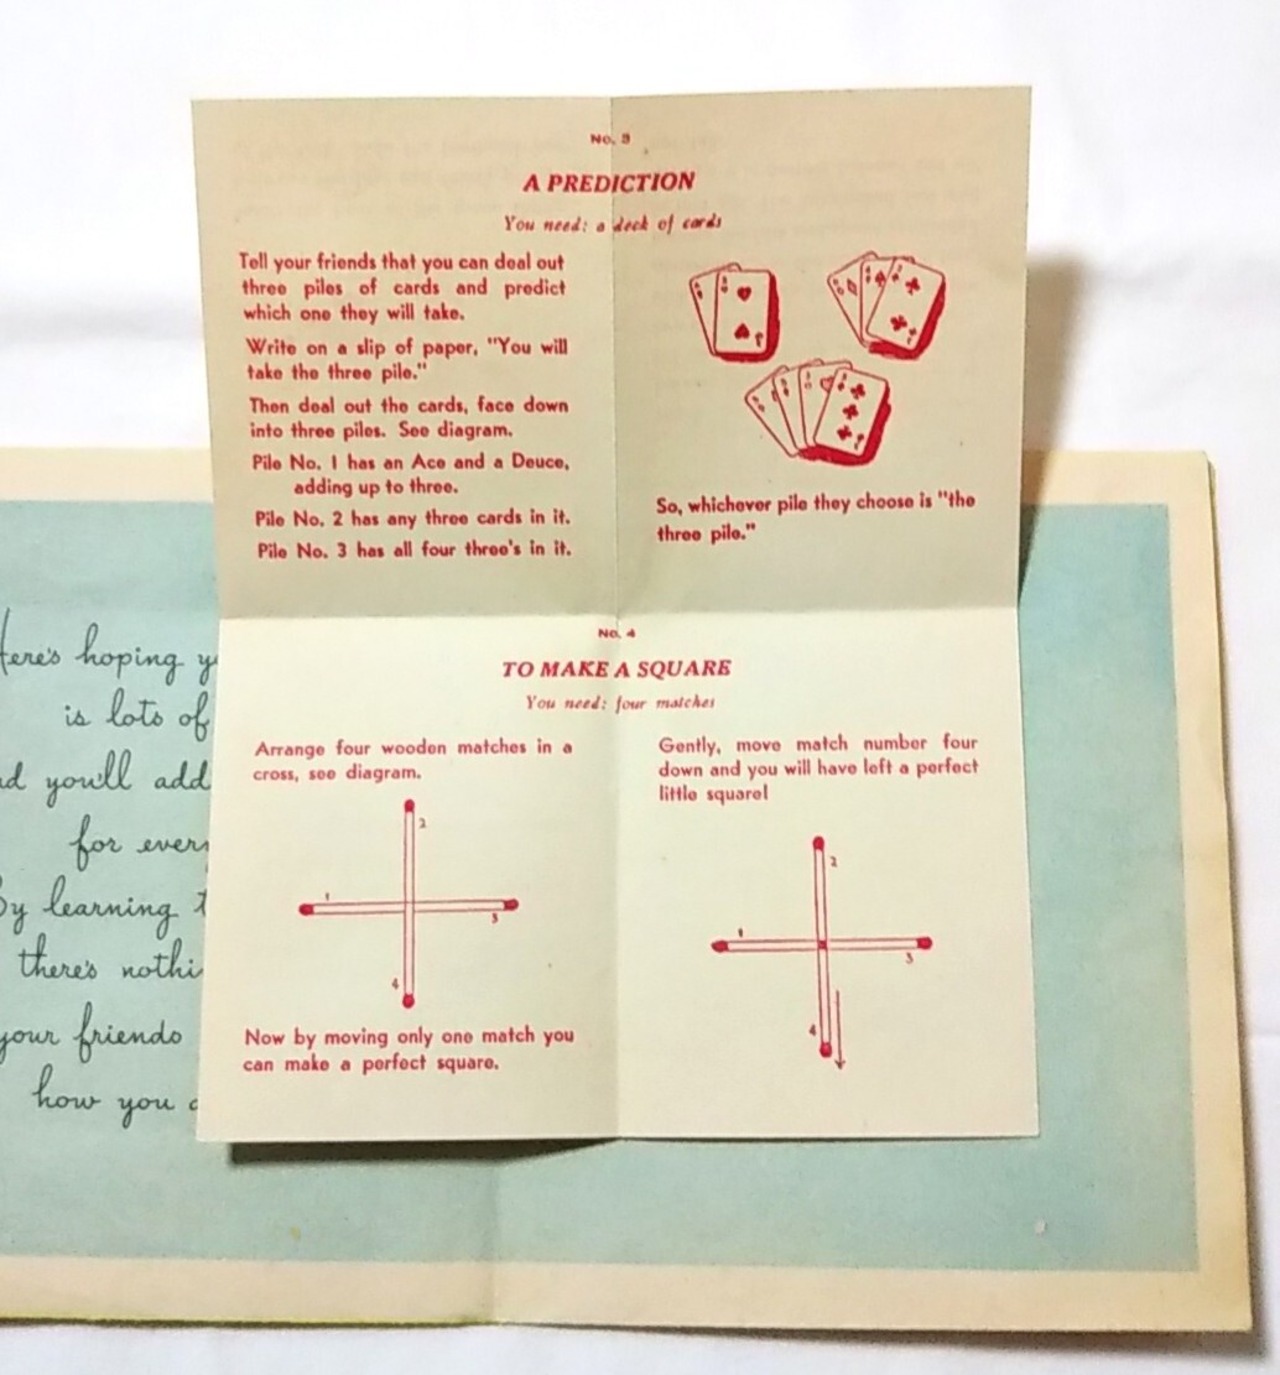 No. 3
A PREDICTION
You need: a deck of cards
Tell your friends that you can deal out
three piles of cards and predict
which one they will take.
Write on a slip of paper, "You will
take the three pile."
Then deal out the cards, face down
into three piles. See diagram.
Pile No. 1 has an Ace and a Deuce,
adding up to three.
Pile No. 2 has any three cards in it.
Pile No. 3 has all four three's in it.
So, whichever pile they choose is "the
three pile."
No. 4
TO MAKE A SQUARE
You need: four matches
Arrange four wooden matches in a
cross, see diagram.
2
1
3
4
Now by moving only one match you
can make a perfect square.
Gently, move match number four
down and you will have left a perfect
little square!
2
1
3
4
Here's hoping
is lots of
you'll add
for
By learning
there's
your friends
how you